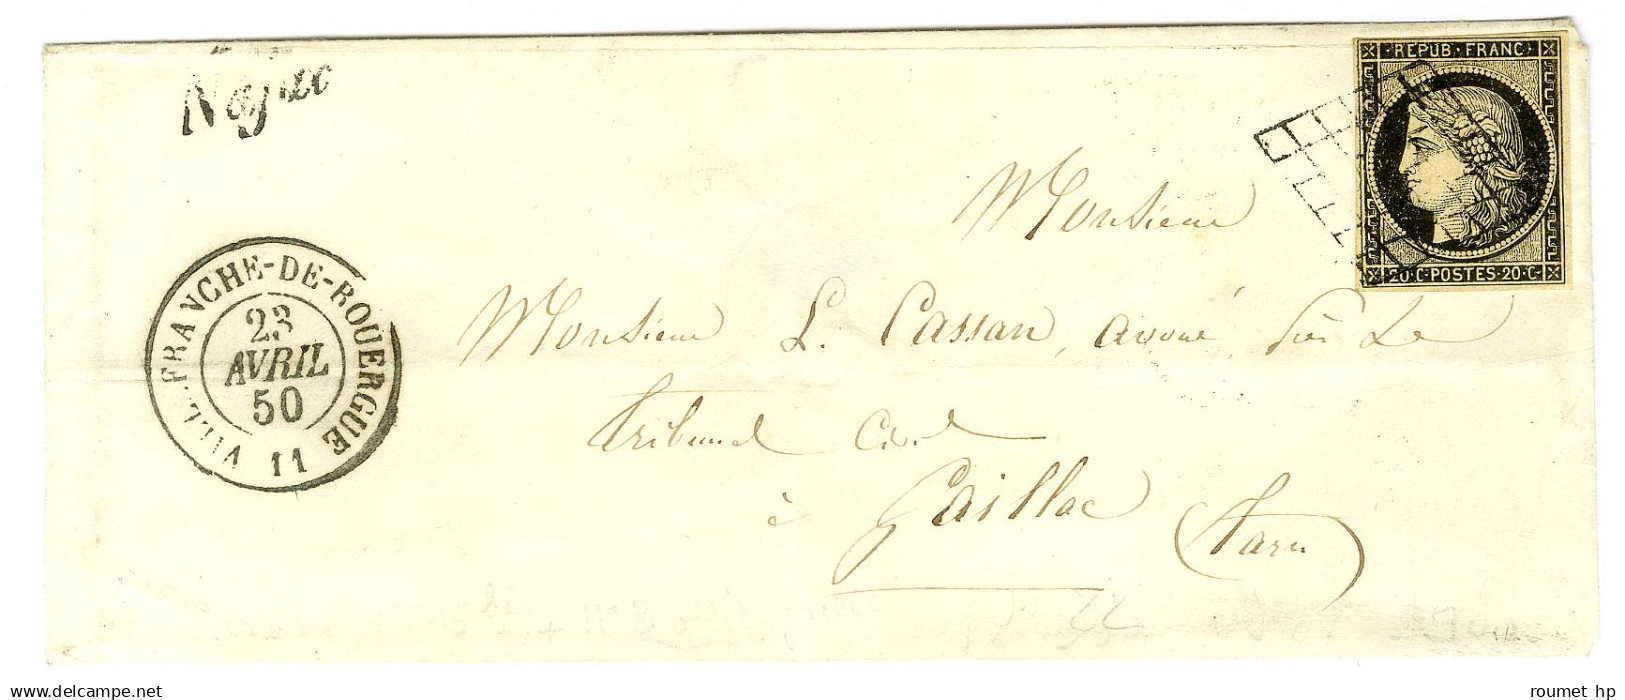 Najac
REPUB · FRANC
20 · C · POSTES · 20 · C
VILLEFRANCHE-DE-ROUERGUE
23
AVRIL
50
11
Monsieur
Monsieur L. Cassan, avoué près Le
Tribunal Civil
à Gaillac (Tarn)
www.delcampe.net
roumet hp